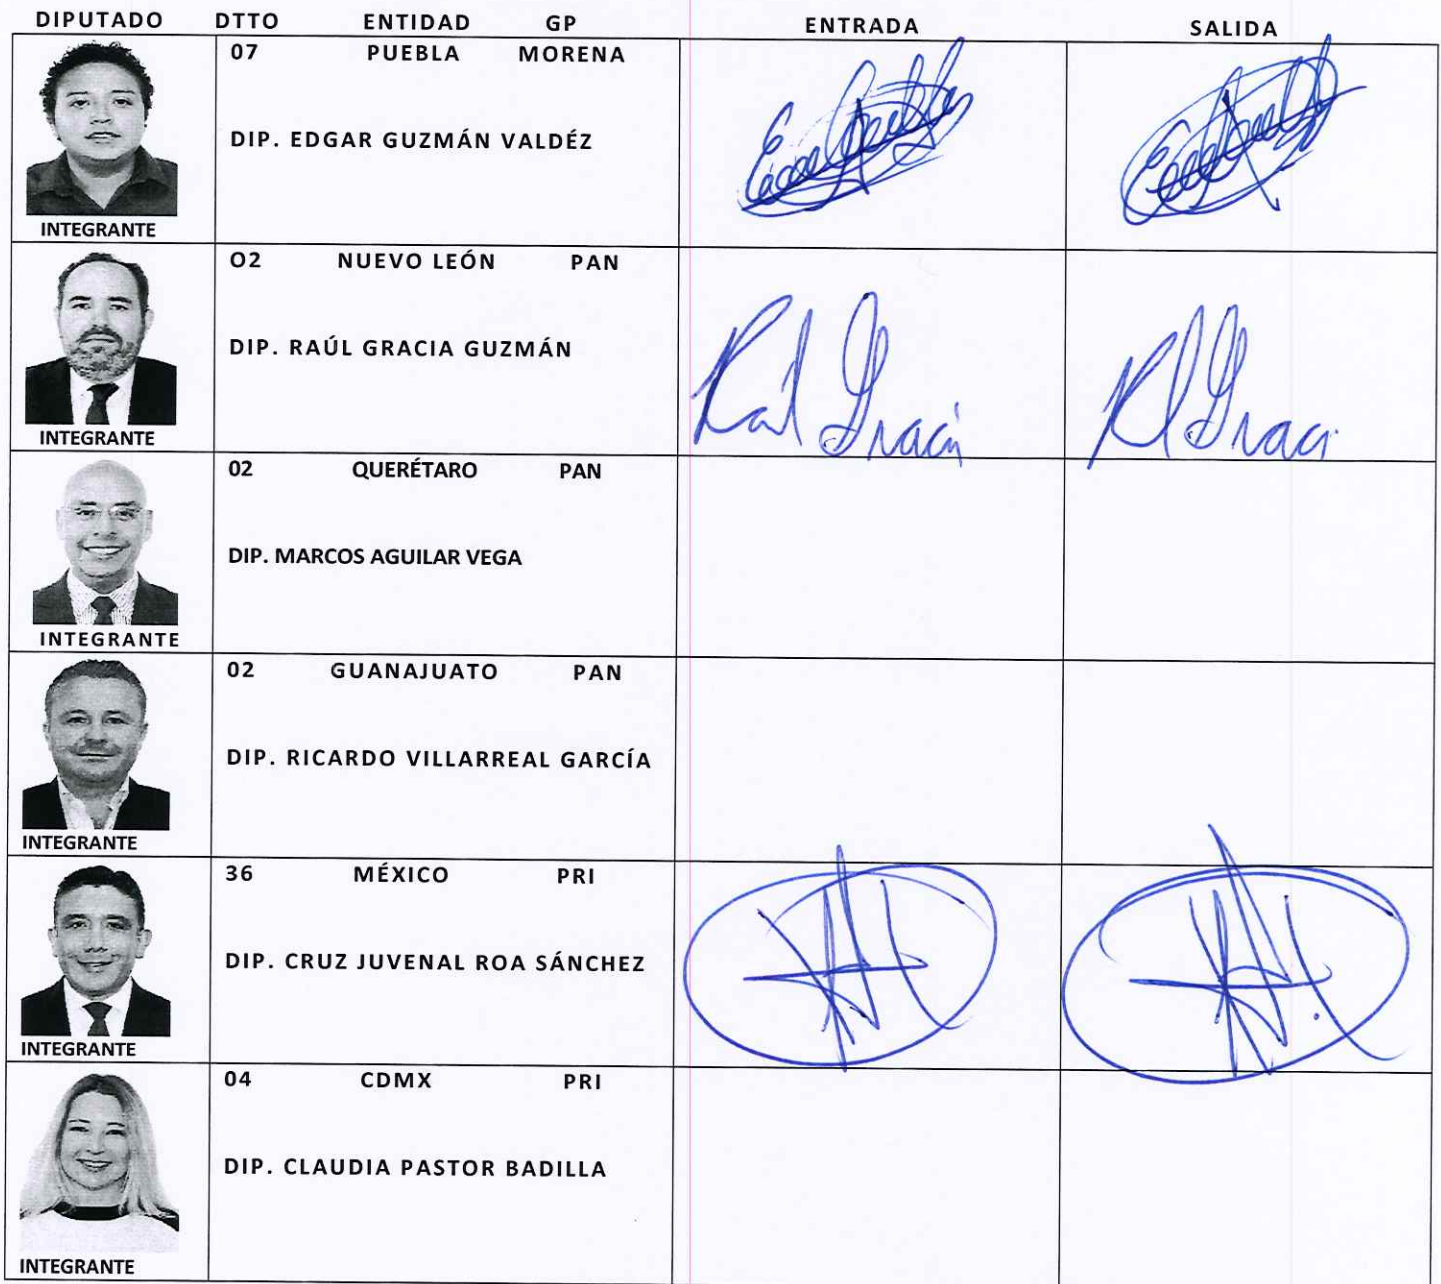 DIPUTADO DTTO ENTIDAD GP ENTRADA SALIDA
07 PUEBLA MORENA
DIP. EDGAR GUZMÁN VALDÉZ
INTEGRANTE
O2 NUEVO LEÓN PAN
DIP. RAÚL GRACIA GUZMÁN
Raúl Gracia
INTEGRANTE
02 QUERÉTARO PAN
DIP. MARCOS AGUILAR VEGA
INTEGRANTE
02 GUANAJUATO PAN
DIP. RICARDO VILLARREAL GARCÍA
INTEGRANTE
36 MÉXICO PRI
DIP. CRUZ JUVENAL ROA SÁNCHEZ
INTEGRANTE
04 CDMX PRI
DIP. CLAUDIA PASTOR BADILLA
INTEGRANTE